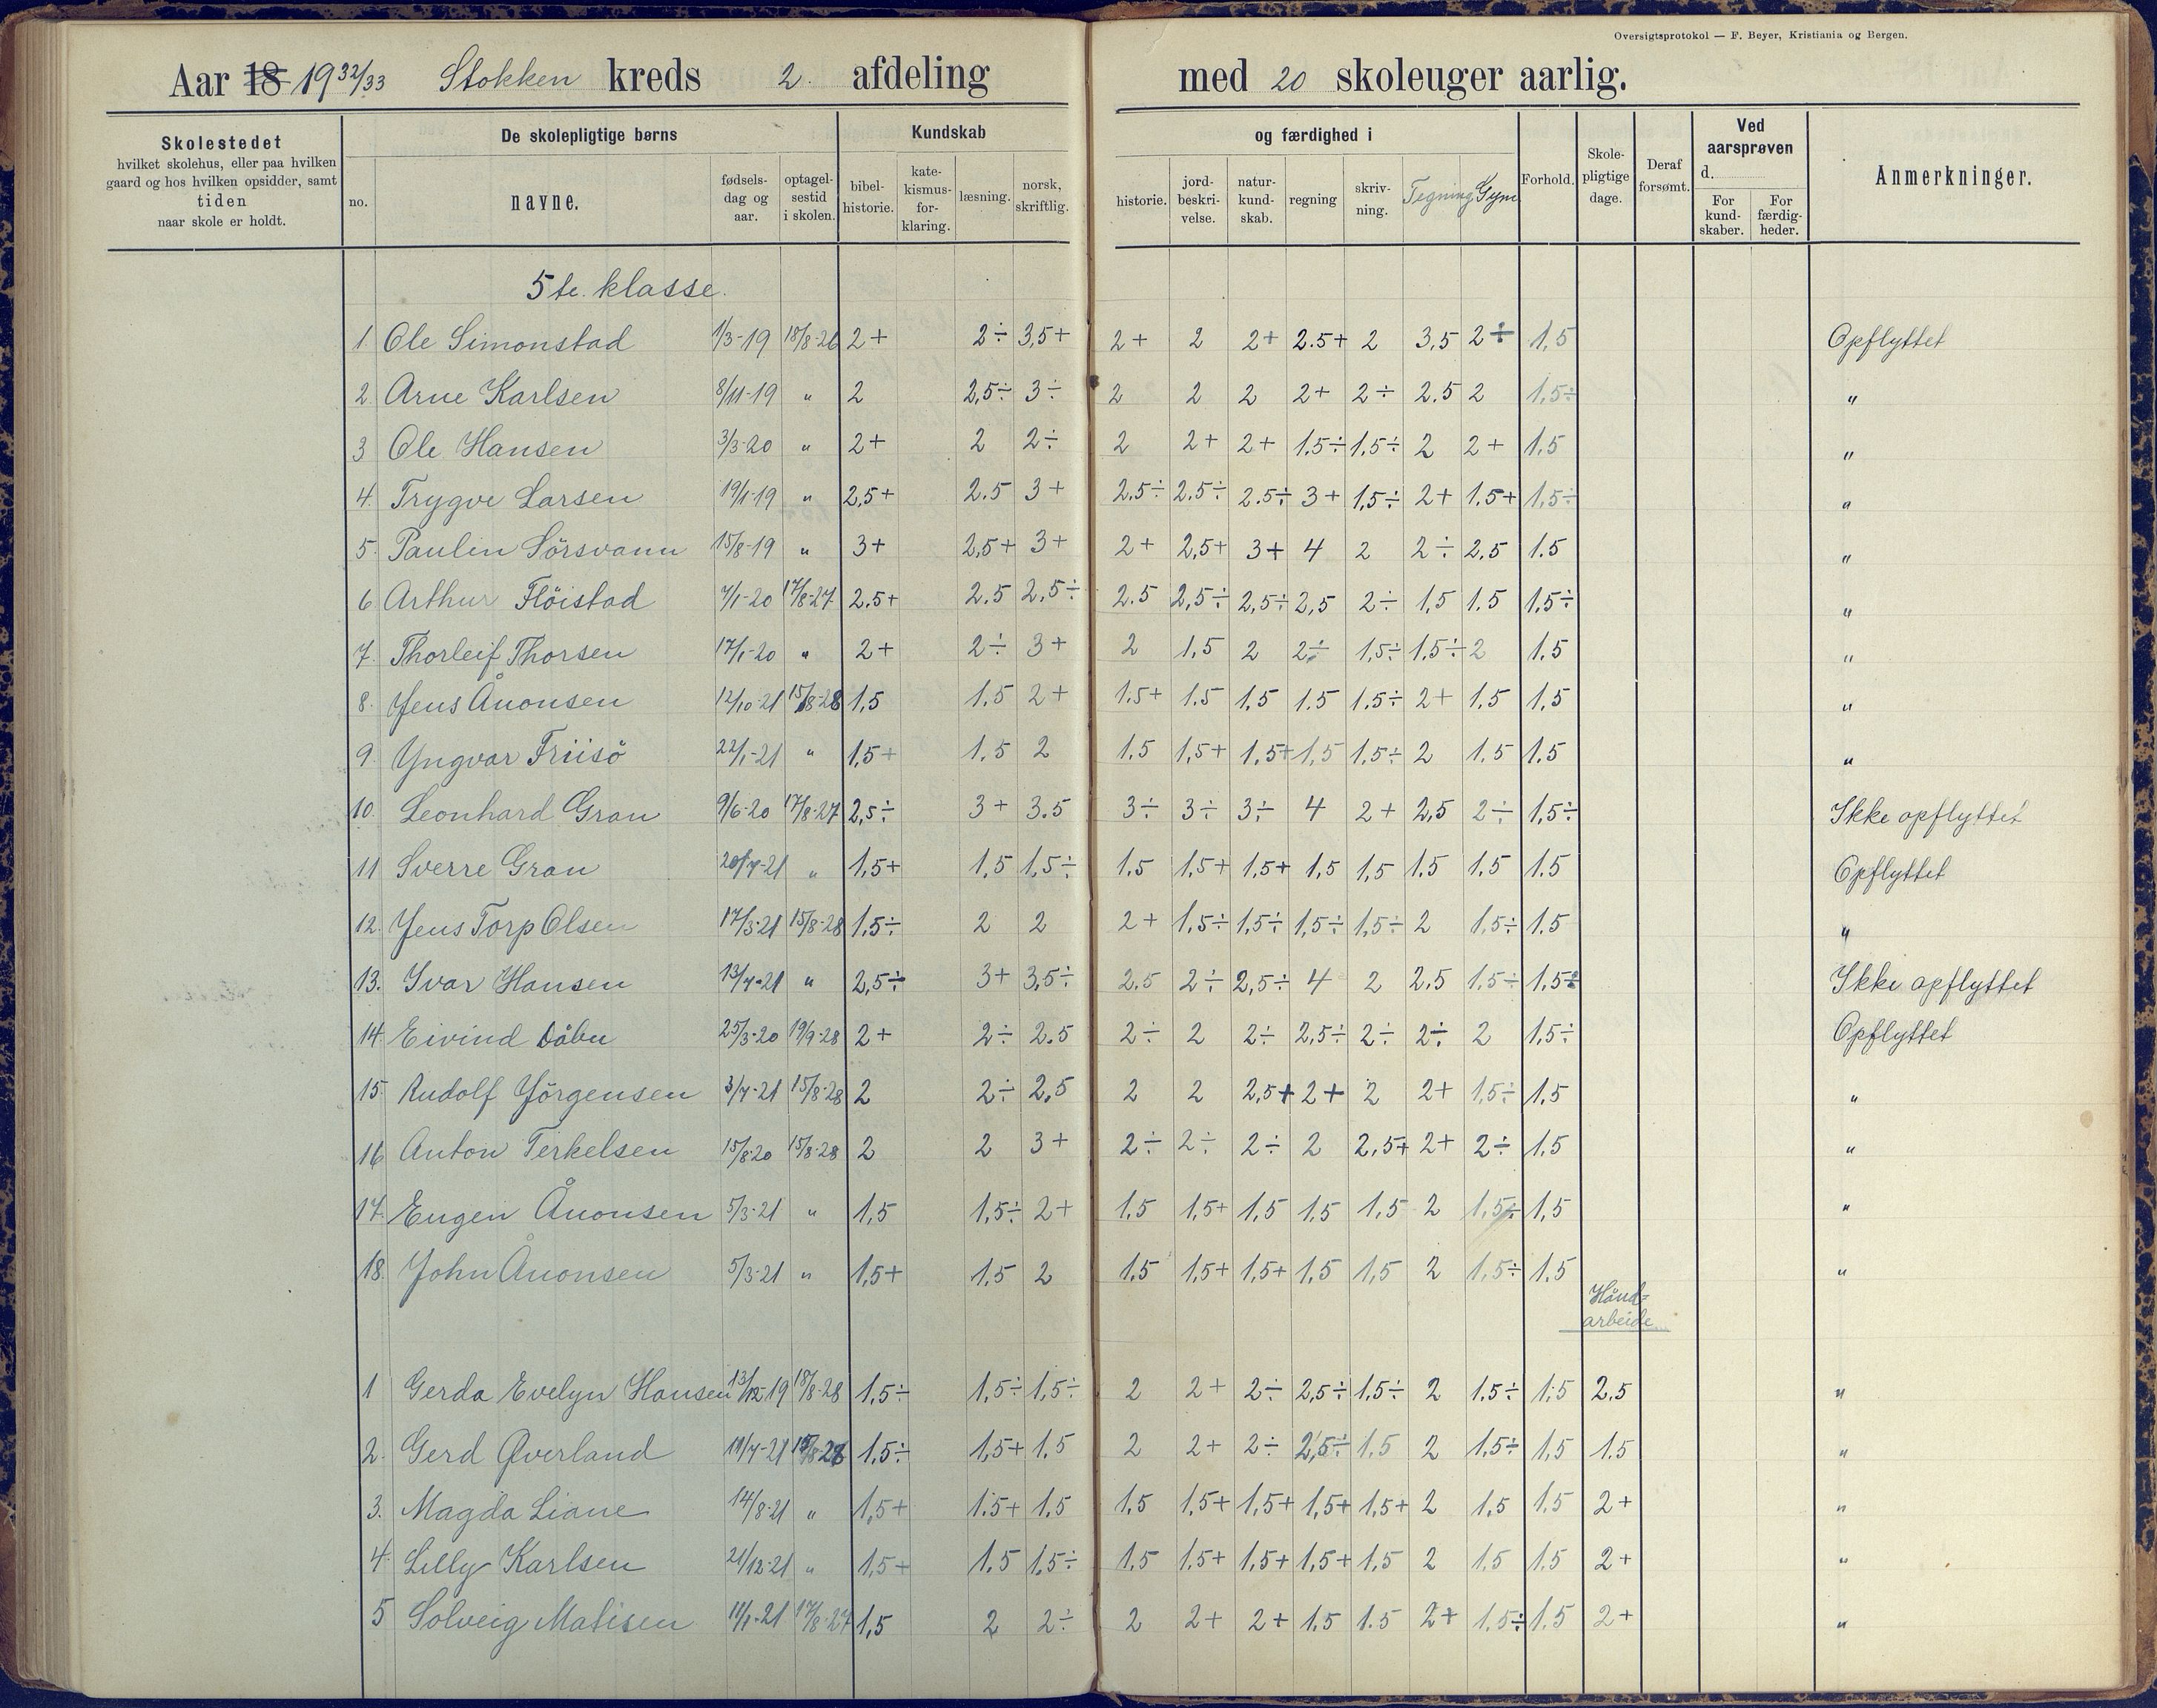 Oversigtsprotokol — F. Beyer, Kristiania og Bergen.
Aar 18 1932/33 Stokken kreds 2. afdeling med 20 skoleuger aarlig.
Skolestedet hvilket skolehus, eller paa hvilken gaard og hos hvilken opsidder, samt tiden naar skole er holdt.
De skolepligtige børns
no. navne. fødselsdag og aar. optagelsestid i skolen.
Kundskab og færdighed i
bibelhistorie. katekismusforklaring. læsning. norsk, skriftlig. historie. jordbeskrivelse. naturkundskab. regning skrivning. Tegning Gym
Forhold. Skolepligtige dage. Deraf forsømt.
Ved aarsprøven d.
For kundskaber. For færdigheder.
Anmerkninger.
5te. klasse.
1 Ole Simonstad 1/3-19 18/8-26 2+ 2÷ 3,5+ 2+ 2 2+ 2.5+ 2 3,5 2÷ 1,5 Opflyttet
2 Arne Karlsen 8/11-19 " 2 2,5÷ 3÷ 2 2 2 2+ 2÷ 2.5 2 1,5÷ "
3 Ole Hansen 3/3-20 " 2+ 2 2÷ 2 2+ 2+ 1.5÷ 1.5÷ 2 2+ 1.5 "
4. Trygve Larsen 19/1-19 " 2,5+ 2.5 3+ 2.5÷ 2.5÷ 2.5÷ 3+ 1,5÷ 2+ 1.5+ 1,5÷ "
5. Paulin Sörsvann 15/8-19 " 3+ 2,5+ 3+ 2+ 2,5+ 3+ 4 2 2÷ 2.5 1.5 "
6. Arthur Flöistad 7/1-20 17/8-27 2.5+ 2.5 2,5÷ 2.5 2,5÷ 2,5÷ 2,5 2÷ 1,5 1.5 1,5÷ "
7. Thorleif Thorsen 17/1-20 " 2+ 2÷ 3+ 2 1,5 2 2÷ 1,5÷ 1.5÷ 2 1.5 "
8. Jens Ånonsen 12/10-21 15/8-28 1,5 1.5 2+ 1.5+ 1.5 1,5 1.5 1.5÷ 2+ 1.5 1,5 "
9. Yngvar Friisö 22/1-21 " 1,5+ 1.5 2 1.5 1,5+ 1.5+ 1,5 1.5÷ 2 1.5 1.5 "
10. Leonhard Gran 9/6-20 17/8-27 2,5÷ 3+ 3.5 3÷ 3÷ 3÷ 4 2+ 2,5 2÷ 1,5÷ Ikke opflyttet
11 Sverre Gran 20/7-21 " 1,5+ 1,5 1,5÷ 1.5 1,5+ 1,5+ 1,5 1,5 1.5 1.5 1.5 Opflyttet
12. Jens Torp Olsen 17/3-21 15/8-28 1,5÷ 2 2 2+ 1,5÷ 1,5÷ 1,5÷ 1,5÷ 2 1,5÷ 1.5 "
13. Ivar Hansen 13/7-21 " 2,5÷ 3+ 3,5÷ 2.5 2÷ 2,5÷ 4 2 2.5 1.5÷ 1.5÷ Ikke opflyttet
14. Eivind Dåbu 25/3-20 19/9-28 2+ 2÷ 2.5 2÷ 2 2÷ 2,5÷ 2÷ 2÷ 2 1,5÷ Opflyttet
15. Rudolf Jörgensen 3/7-21 15/8-28 2 2÷ 2,5 2 2 2,5+ 2+ 2 2+ 1,5÷ 1.5 "
16 Anton Terkelsen 15/8-20 15/8-28 2 2 3+ 2÷ 2÷ 2÷ 2 2,5+ 2+ 2÷ 1,5 "
17. Eugen Ånonsen 5/3-21 " 1,5 1,5÷ 2+ 1.5 1,5+ 1,5 1,5 1,5 2 1,5÷ 1,5 "
18. John Ånonsen 5/3-21 " 1,5+ 1,5 2 1.5 1,5+ 1,5+ 1,5 1,5 2 1,5÷ 1.5 "
Hånd-
arbeide
1 Gerda Evelyn Hansen 13/12-19 18/8-28 1,5÷ 1,5÷ 1,5÷ 2 2+ 2÷ 2,5÷ 1,5÷ 2 1.5÷ 1,5 2.5 "
2. Gerd Øverland 11/7-21 15/8-28 1,5÷ 1,5+ 1.5 2 2+ 2÷ 2,5÷ 1.5 2 1.5÷ 1,5 1.5 "
3. Magda Liane 14/8-21 " 1,5+ 1.5+ 1.5 1,5 1,5+ 1,5+ 1,5+ 1,5+ 2 1,5 1,5 2+ "
4. Lilly Karlsen 21/12-21 " 1,5+ 1.5 1,5÷ 1.5 1,5+ 1,5+ 1,5+ 1,5 2 1,5 1,5 2+ "
5 Solveig Matisen 11/1-21 17/8-27 1,5 2 2÷ 2 2+ 2+ 1.5 1.5 2+ 1.5÷ 1,5 2+ "